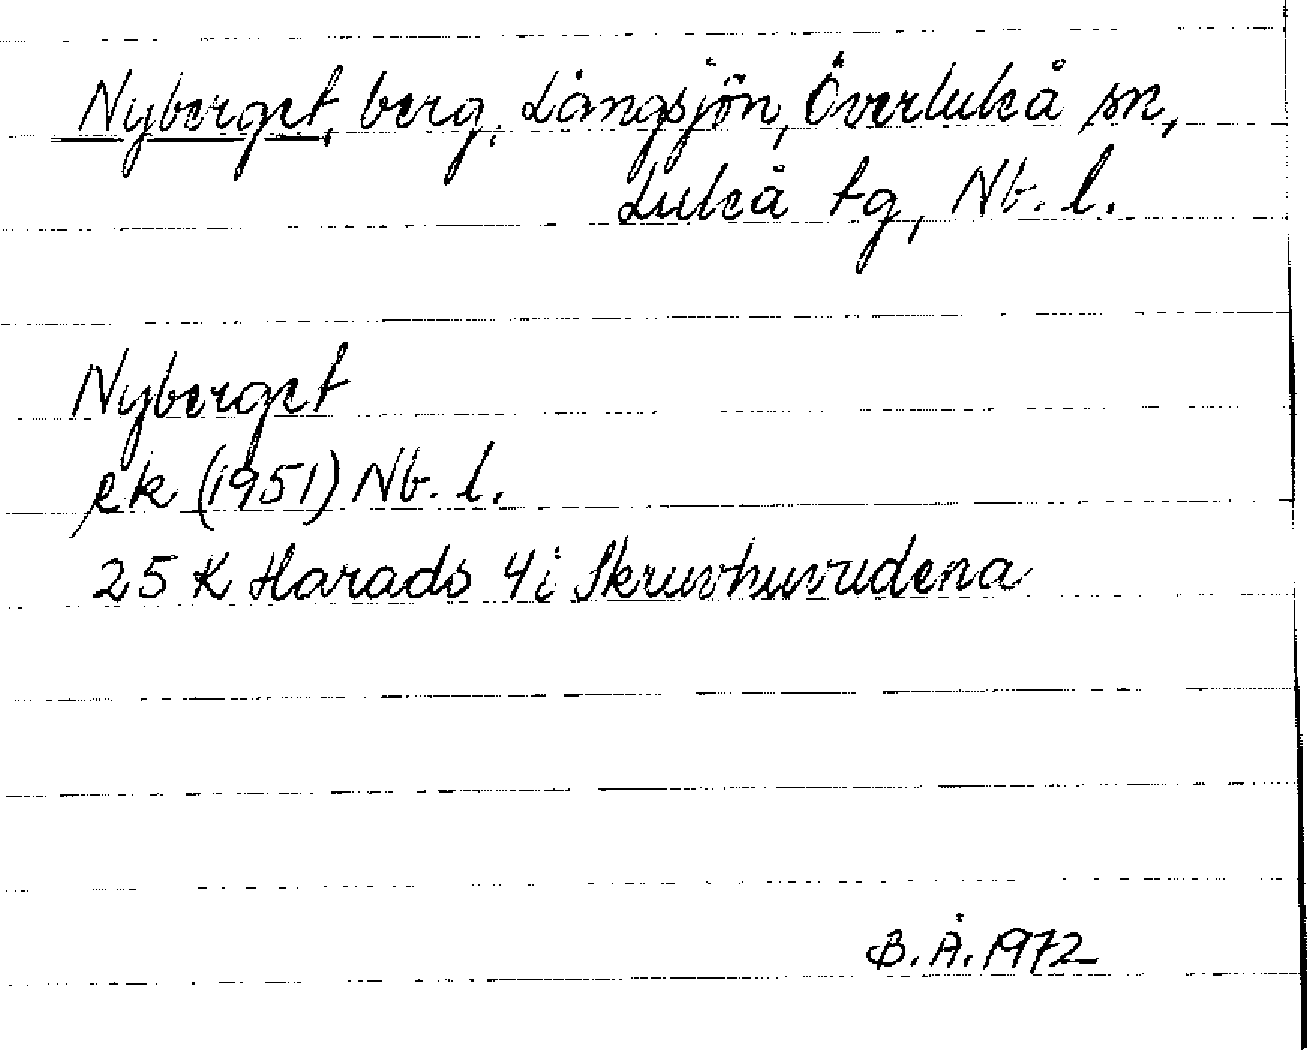 Nyberget, berg, Långsjön, Överluleå sn,
Luleå tg, Nb. l.
Nyberget
ek (1951) Nb. l.
25 K Harads 4i Skruvhuvudena
B.Å. 1972